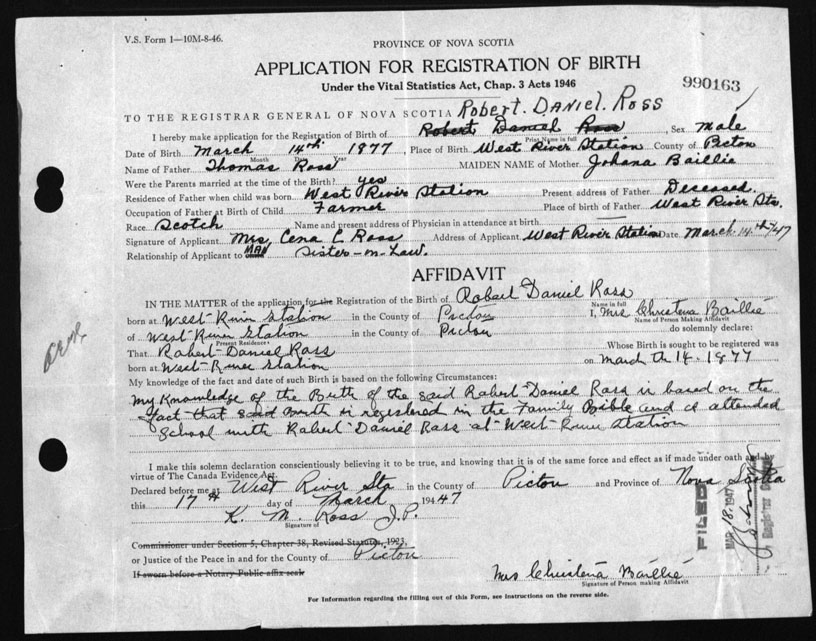 V.S. Form 1—10M-8-46.
PROVINCE OF NOVA SCOTIA
APPLICATION FOR REGISTRATION OF BIRTH
Under the Vital Statistics Act, Chap. 3 Acts 1946
990163
TO THE REGISTRAR GENERAL OF NOVA SCOTIA Robert. DANIEL. ROSS
I hereby make application for the Registration of Birth of Robert Daniel Ross, Sex Male
Print Name in full
Date of Birth March 14th 1877, Place of Birth West River Station County of Picton
Month Day Year
Name of Father Thomas Ross MAIDEN NAME of Mother Johana Baillie
Were the Parents married at the time of the Birth? yes
Residence of Father when child was born West River Station Present address of Father Deceased.
Occupation of Father at Birth of Child Farmer Place of birth of Father West River Sta.
Race Scotch Name and present address of Physician in attendance at birth
Signature of Applicant Mrs, Cena C Ross Address of Applicant West River Station Date March 14th/47
Relationship of Applicant to MAN Sister-in-Law.
AFFIDAVIT
IN THE MATTER of the application for the Registration of the Birth of Robert Daniel Ross
Name in full
born at West River Station in the County of Pictou I, Mrs Christena Baillie
Name of Person Making Affidavit
of West River Station in the County of Pictou do solemnly declare:
Present Residence
That Robert Daniel Ross Whose Birth is sought to be registered was
born at West River Station on March th 14. 1877
My knowledge of the fact and date of such Birth is based on the following Circumstances:
My Knowledge of the Birth of the said Robert Daniel Ross is based on the
fact that said Birth is registered in the Family Bible and I attended
School with Robert Daniel Ross at West River Station
I make this solemn declaration conscientiously believing it to be true, and knowing that it is of the same force and effect as if made under oath and by
virtue of The Canada Evidence Act.
Declared before me at West River Sta in the County of Picton and Province of Nova Scotia
this 17th day of March 194 47
K. M. Ross J.P.
Signature of
Commissioner under Section 5, Chapter 38, Revised Statutes, 1923,
or Justice of the Peace in and for the County of Picton
If sworn before a Notary Public affix seal
Mrs Christena Baillie
Signature of Person making Affidavit
FILED
MAR 18. 1947
For Information regarding the filling out of this Form, see instructions on the reverse side.